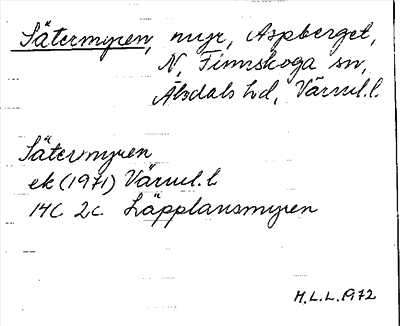 Sätermyren, myr, Aspberget,
N. Finnskoga sn,
Älvdals hd, Värml. l.
Sätermyren
ek (1971) Värml. l.
14C 2c Läpplausmyren
M.L.L. 1972